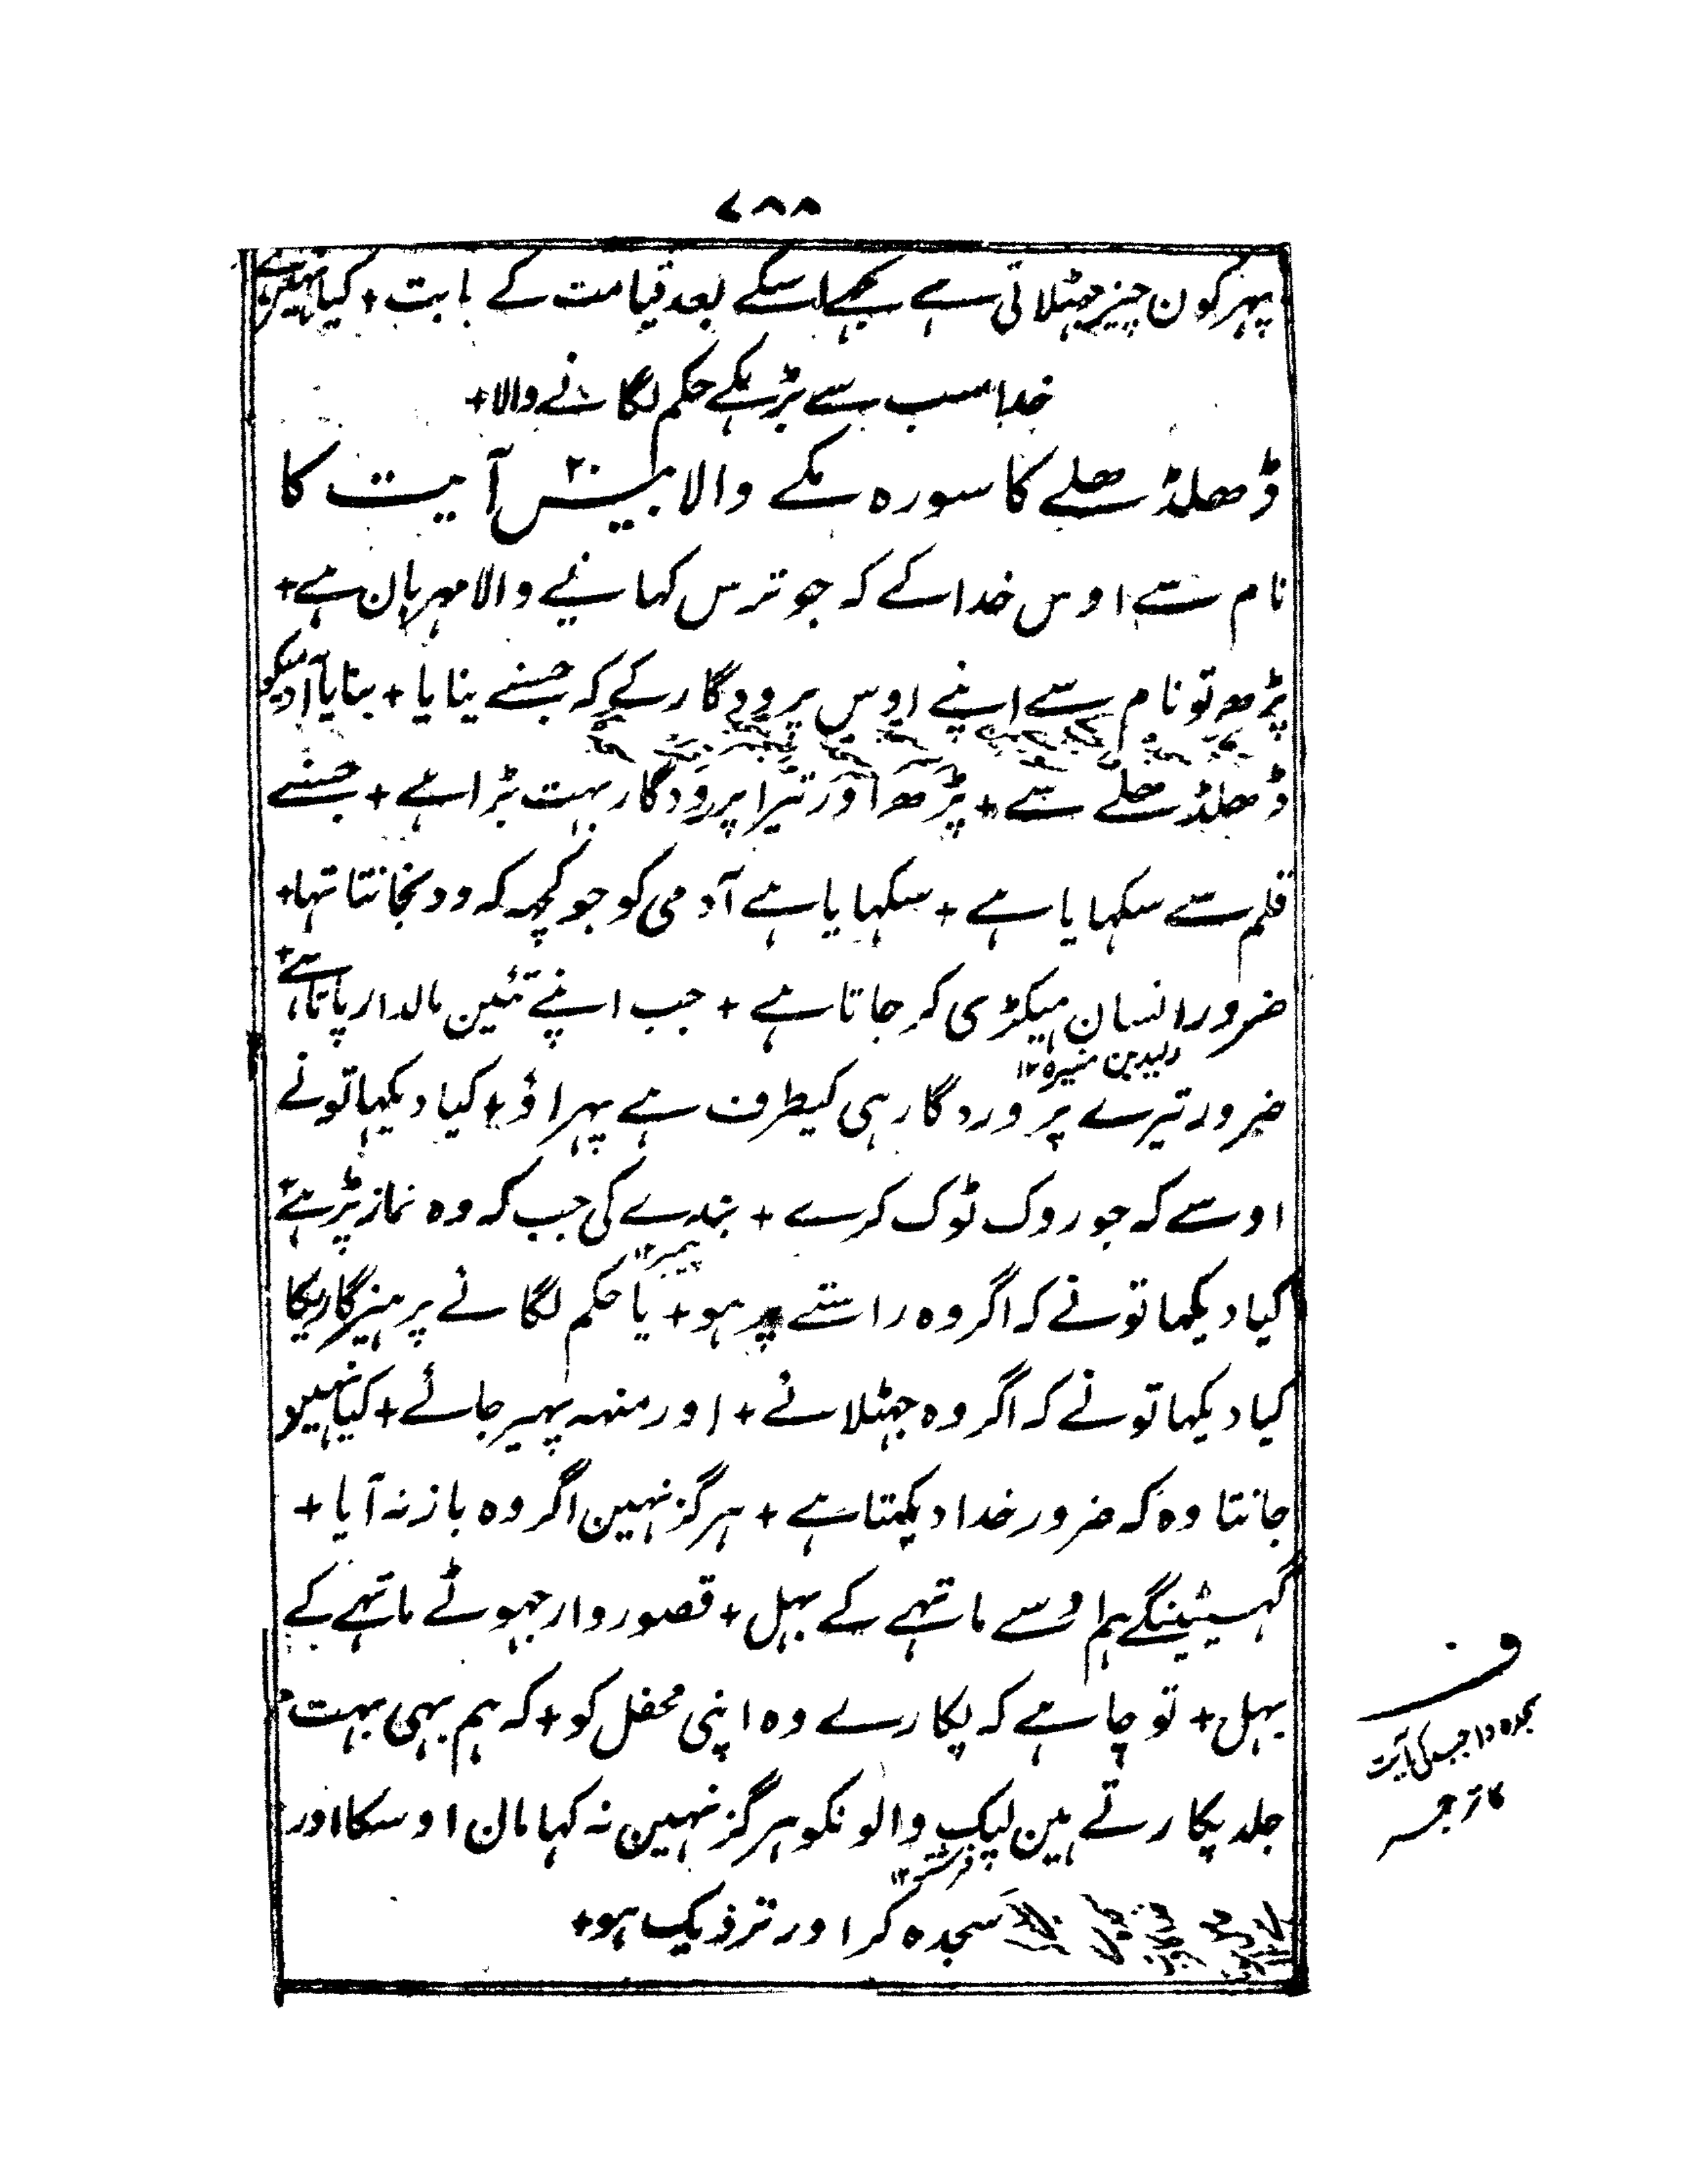 ۷۸۸
پہر کون چیز جہٹلاتی ہے تجھے اسکے بعد قیامت کے بابت + کیا نہیں ہے
خدا سب سے بڑہکے حکم لگانے والا +
ڈھلڈھلے کا سورہ مکے والا بیس ۲۰ آیت کا
نام سے اوس خدا کے کہ جو ترس کہانے والا مہربان ہے +
پڑھ تو نام سے اپنے اوس پرودگار کے کہ جسنے بنایا + بنایا آدمیکو
ڈھلڈھلے سے + پڑھ اور تیرا پرودگار بہت بڑا ہے + جسنے
قلم سے سکہایا ہے + سکہایا ہے آدمی کو جو کچہہ کہ وہ نجانتا تہا +
ضرور انسان ہیکڑی کر جاتا ہے + جب اپنے تئین مالدار پاتا ہے +
ولید بن مغیرہ ۱۲
ضرور تیرے پروردگار ہی کیطرف ہے پہراؤ + کیا دیکہا تونے
اوسے کہ جو روک ٹوک کرے + بندے کی جب کہ وہ نماز پڑہے +
پیمبر ۱۲
کیا دیکہا تونے کہ اگر وہ راستے پر ہو + یا حکم لگائے پرہیزگاریکا
کیا دیکہا تونے کہ اگر وہ جہٹلائے + اور منہہ پہیر جائے + کیا نہیں
جانتا وہ کہ ضرور خدا دیکہتا ہے + ہرگز نہین اگر وہ باز نہ آیا +
گہسیٹینگے ہم اوسے ماتہے کے بہل + قصوروار جہوٹے ماتہے کے
بہل + تو چاہے کہ پکارے وہ اپنی محفل کو + کہ ہم بہی بہت
جلد پکارتے ہین لپک والونکو ہرگز نہین نہ کہا مان اوسکا اور
فرشتے ۱۲
سجدہ کر اور نزدیک ہو +
ف
سجدہ واجب کی آیت
کا ترجمہ